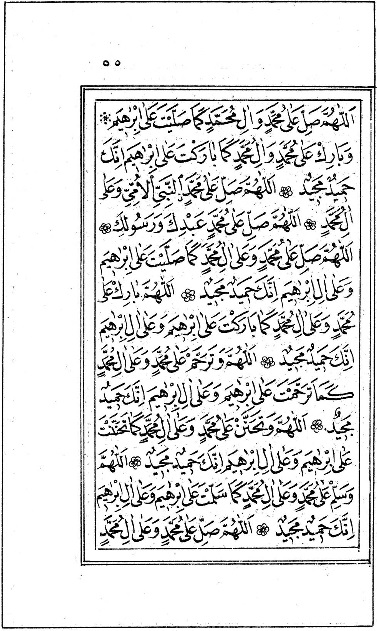 ٥٥
اَللّٰهُمَّ صَلِّ عَلٰى مُحَمَّدٍ وَاٰلِ مُحَمَّدٍ كَمَا صَلَّيْتَ عَلٰى اِبْرٰهِيْمَ
وَبَارِكْ عَلٰى مُحَمَّدٍ وَاٰلِ مُحَمَّدٍ كَمَا بَارَكْتَ عَلٰى اِبْرٰهِيْمَ اِنَّكَ
حَمِيْدٌ مَّجِيْدٌ اَللّٰهُمَّ صَلِّ عَلٰى مُحَمَّدِ ۨالنَّبِيِّ الْاُمِّيِّ وَعَلٰى
اٰلِ مُحَمَّدٍ اَللّٰهُمَّ صَلِّ عَلٰى مُحَمَّدٍ عَبْدِكَ وَرَسُوْلِكَ
اَللّٰهُمَّ صَلِّ عَلٰى مُحَمَّدٍ وَعَلٰى اٰلِ مُحَمَّدٍ كَمَا صَلَّيْتَ عَلٰى اِبْرٰهِيْمَ
وَعَلٰى اٰلِ اِبْرٰهِيْمَ اِنَّكَ حَمِيْدٌ مَّجِيْدٌ اَللّٰهُمَّ بَارِكْ عَلٰى
مُحَمَّدٍ وَعَلٰى اٰلِ مُحَمَّدٍ كَمَا بَارَكْتَ عَلٰى اِبْرٰهِيْمَ وَعَلٰى اٰلِ اِبْرٰهِيْمَ
اِنَّكَ حَمِيْدٌ مَّجِيْدٌ اَللّٰهُمَّ وَتَرَحَّمْ عَلٰى مُحَمَّدٍ وَعَلٰى اٰلِ مُحَمَّدٍ
كَمَا تَرَحَّمْتَ عَلٰى اِبْرٰهِيْمَ وَعَلٰى اٰلِ اِبْرٰهِيْمَ اِنَّكَ حَمِيْدٌ
مَّجِيْدٌ اَللّٰهُمَّ وَتَحَنَّنْ عَلٰى مُحَمَّدٍ وَعَلٰى اٰلِ مُحَمَّدٍ كَمَا تَحَنَّنْتَ
عَلٰى اِبْرٰهِيْمَ وَعَلٰى اٰلِ اِبْرٰهِيْمَ اِنَّكَ حَمِيْدٌ مَّجِيْدٌ اَللّٰهُمَّ
وَسَلِّمْ عَلٰى مُحَمَّدٍ وَعَلٰى اٰلِ مُحَمَّدٍ كَمَا سَلَّمْتَ عَلٰى اِبْرٰهِيْمَ وَعَلٰى اٰلِ اِبْرٰهِيْمَ
اِنَّكَ حَمِيْدٌ مَّجِيْدٌ اَللّٰهُمَّ صَلِّ عَلٰى مُحَمَّدٍ وَعَلٰى اٰلِ مُحَمَّدٍ